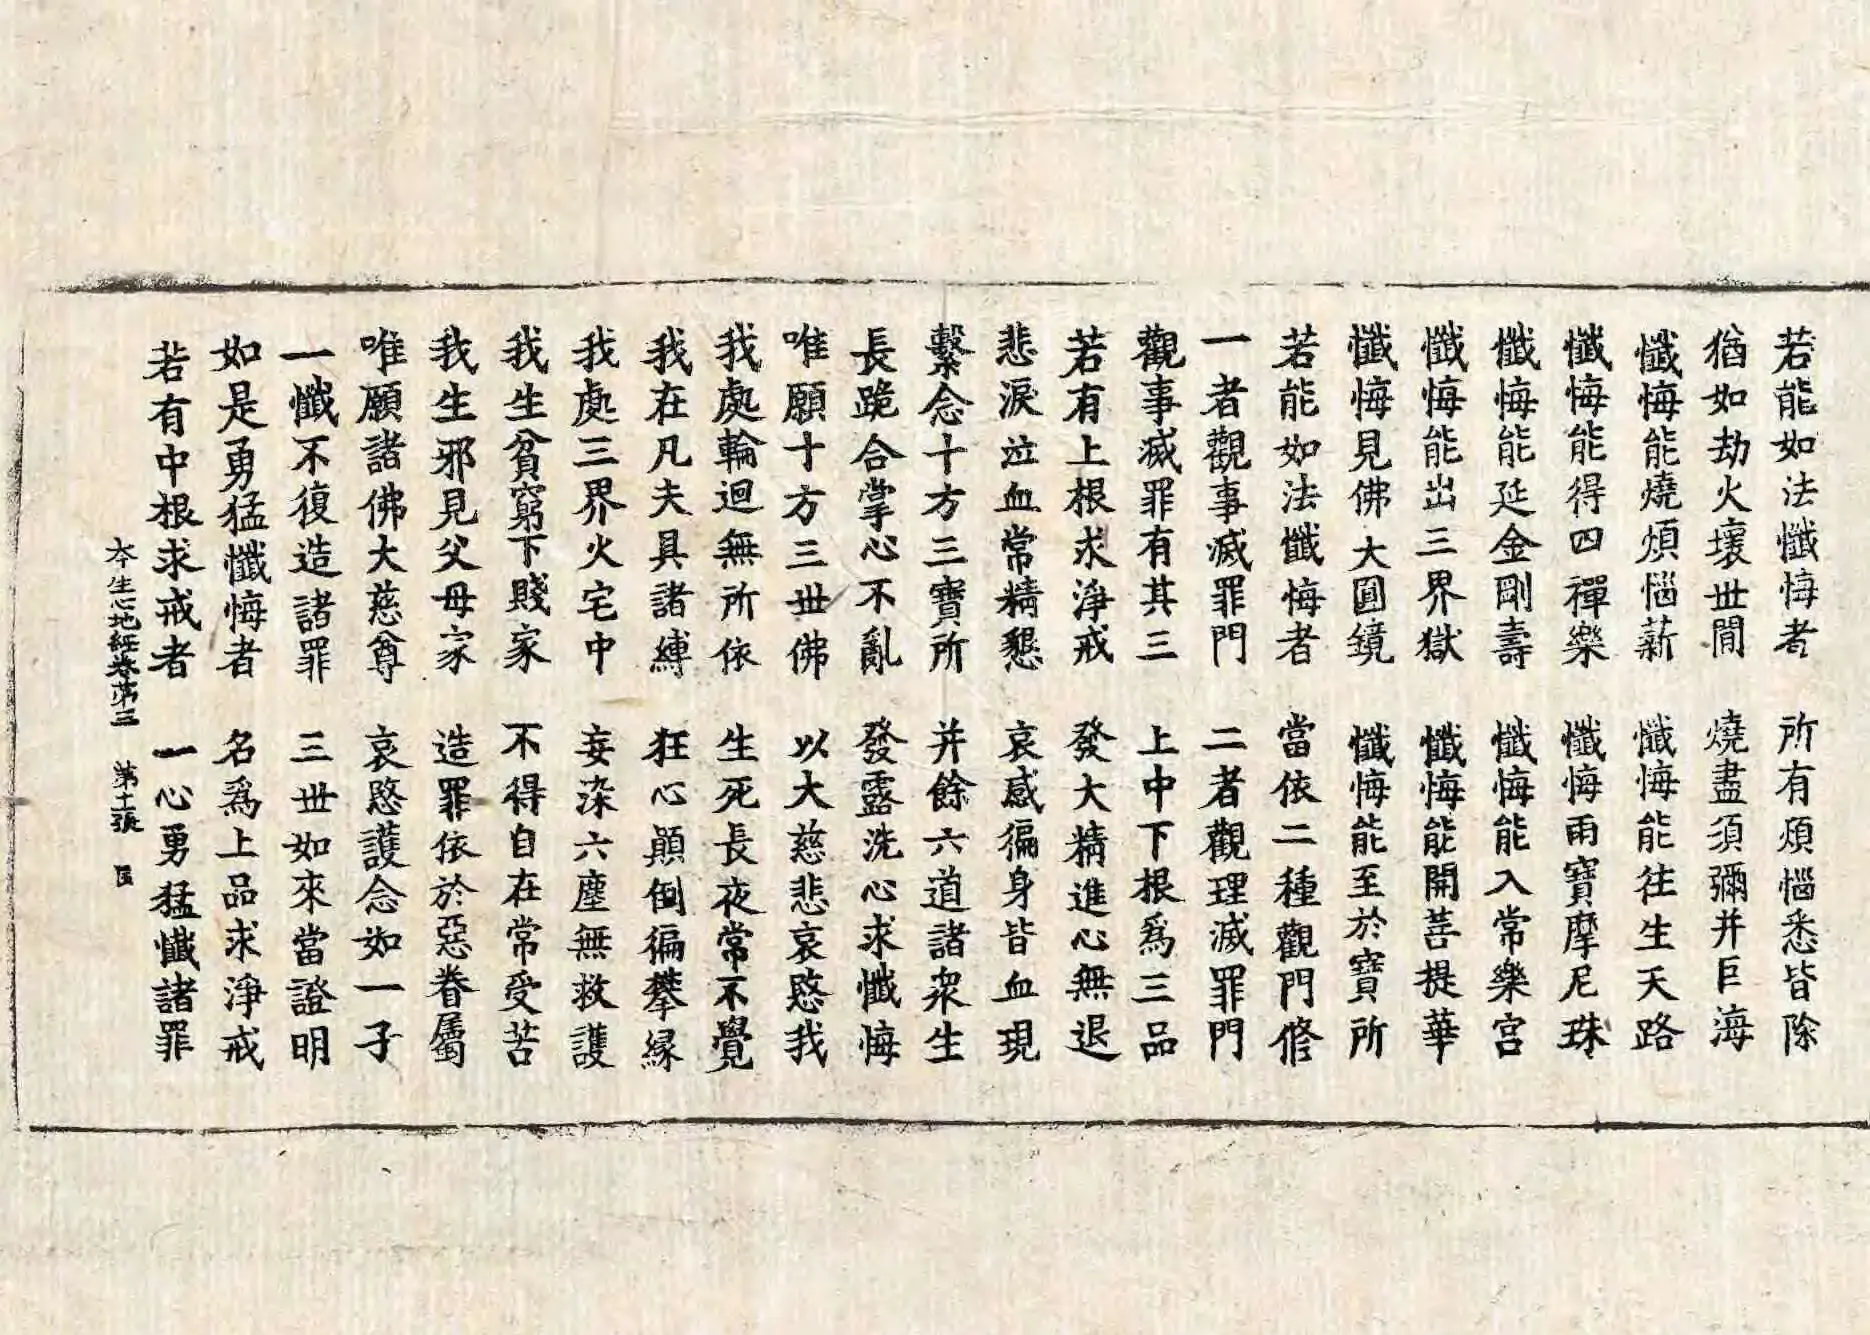 若能如法懺悔者　所有煩惱悉皆除
猶如劫火壞世閒　燒盡須彌并巨海
懺悔能燒煩惱薪　懺悔能往生天路
懺悔能得四禪樂　懺悔雨寶摩尼珠
懺悔能延金剛壽　懺悔能入常樂宮
懺悔能出三界獄　懺悔能開菩提華
懺悔見佛大圓鏡　懺悔能至於寶所
若能如法懺悔者　當依二種觀門修
一者觀事滅罪門　二者觀理滅罪門
觀事滅罪有其三　上中下根爲三品
若有上根求淨戒　發大精進心無退
悲淚泣血常精懇　哀感徧身皆血現
繫念十方三寶所　并餘六道諸衆生
長跪合掌心不亂　發露洗心求懺悔
唯願十方三世佛　以大慈悲哀愍我
我處輪迴無所依　生死長夜常不覺
我在凡夫具諸縛　狂心顚倒徧攀緣
我處三界火宅中　妄染六塵無救護
我生貧窮下賤家　不得自在常受苦
我生邪見父母家　造罪依於惡眷屬
唯願諸佛大慈尊　哀愍護念如一子
一懺不復造諸罪　三世如來當證明
如是勇猛懺悔者　名爲上品求淨戒
若有中根求戒者　一心勇猛懺諸罪
本生心地經卷第三　第十張